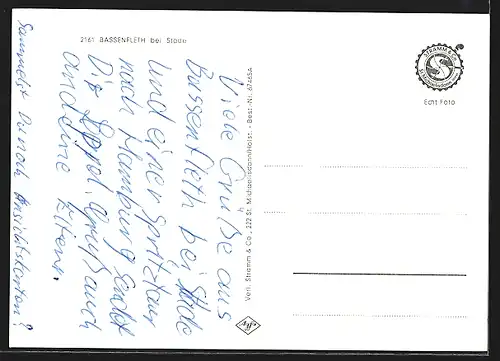 2161 BASSENFLETH bei Stade
Viele Grüße aus
Bassenfleth bei Stade
und einer Spritztour
nach Hamburg sendet
Dir Gruß auch
an deine Eltern.
Sammelst Du noch Ansichtskarten?
Verl. Stramm & Co., 222 St. Michaelisdonn/Holst. - Best.-Nr. 67465A
STRAMM & Co.
St. Michaelisdonn
Echt Foto